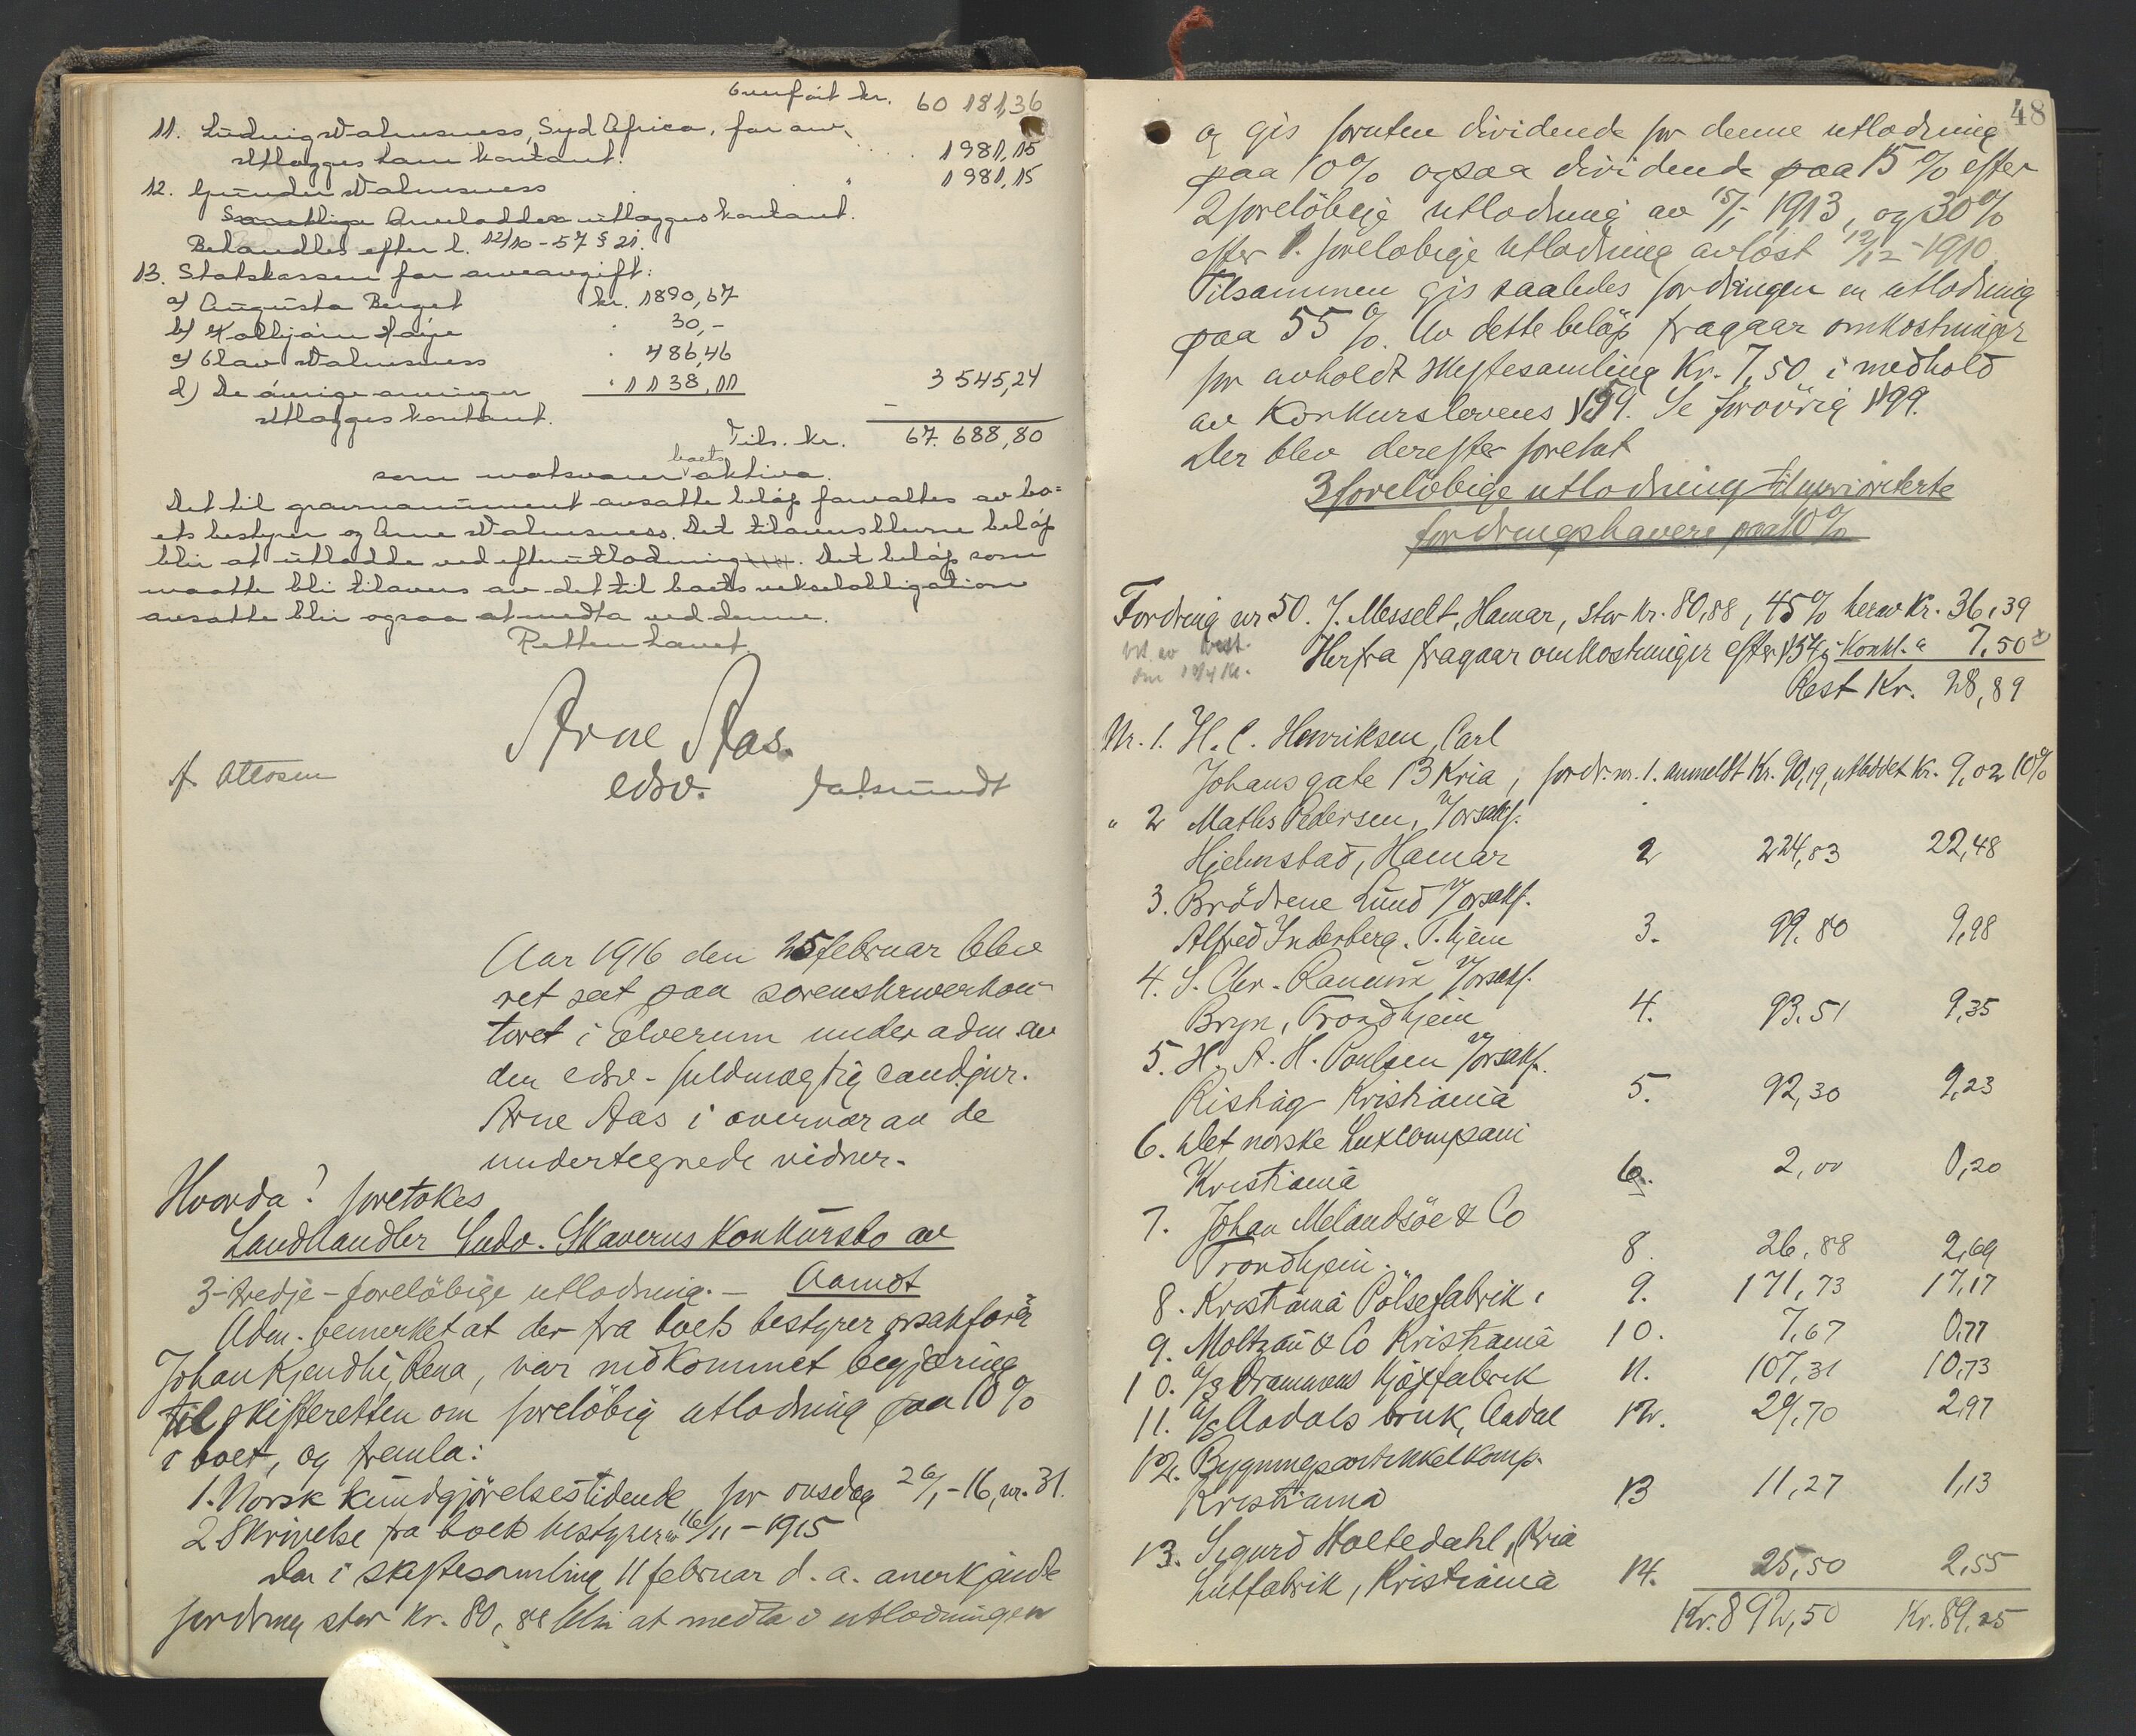 Overført kr. 60 181,36
11. Ludvig Walmsness, Syd Africa, for arv,
Utlægges ham kontant. 1981,15
12. Gunder Walmsness " 1981,15
Samtlige utlægges kontant.
Behandles efter l. 12/10-57 § 21.
13. Statskassen for arveavgift:
a) Augusta Berget kr. 1890,67
b) Kolbjørn " 30,-
c) Olav Walmsness " 486,46
d) De øvrige arvinger " 1138,11 3 545,24
Utlægges kontant.
Tils. kr. 67.688,80
som motsvarer boets aktiva.
Det til gravmonument avsatte beløp forvaltes av bo=
ets bestyrer og Arne Walmsness. Det tiloversblevne beløp
blir at utlodde ved efterutlodning. Det beløp som
maatte bli tilovers av det til boets vekselobligation
avsatte blir ogsaa at medta ved denne.
Retten hævet.
Arne Aas.
edsv.
A. Ottosen
Aar 1916 den 25 februar blev
ret sat paa sorenskriverkon-
toret i Elverum under adm. av
den edsv. fuldmægtig cand. jur.
Arne Aas i overvær av de
undertegnede vidner.
Hvorda! foretokes
Landhandler Ludv. Skaverns konkursbo av
Aamot
3-tredje-foreløbige utlodning.-
Adm. bemerket at der fra boets bestyrer o.sakfører
Johan Kjendli, Rena, var indkommet begjæring
til skifteretten om foreløbig utlodning paa 10%
i boet, og fremla:
1. Norsk kundgjörelsestidende for onsdag 26/1-16, nr. 31.
2 Skrivelse fra boets bestyrer av 16/11-1915
Den i skiftesamling 11 februar d. a. anerkjendte
fordring stor kr. 80,88 blir at medta i utlodningen
48
og gis foruten dividende for denne utlodning
paa 10% ogsaa dividende paa 15% efter
2 foreløbige utlodning av 15/1-1913, og 30%
efter 1. foreløbige utlodning avlöst 12/12-1910
Tilsammen gis saaledes fordringen en utlodning
paa 55%. Av dette beløp fragaar omkostninger
for avholdt skiftesamling Kr. 7,50 i medhold
av Konkurslovens § 59. Se forövrig § 99.
Der blev derefter foretat
3 foreløbige utlodning til uprioriterte
fordringshavere paa 10%
Fordring nr 50. J. Messelt, Hamar, stor Kr. 80,88, 45% herav Kr. 36,39
Herfra fragaar omkostninger efter § 54 i Konkl. " 7,50
Rest Kr. 28,89
Nr. 1. H. C. Henriksen, Carl
Johans gate 13 Kria, fordr. nr. 1. anmeldt Kr. 90,19, utloddet Kr. 9,02 10%
" 2 Mathis Pedersen, v/orsakf.
Hjelmstad, Hamar 2 224,83 22,48
3. Brödrene Lund v/orsakf.
Alfred Inderberg. T.hjem 3. 99.80 9,98
4. S. Chr. v/orsakf.
Bryn, Trondhjem 4. 93.51 9,35
5. H. A. H. Poulsen v/orsakf.
Kristiania 5. 92,30 9,23
6. Det norske Luxcompani
Kristiania 6. 2,00 0,20
7. Johan Melandsöe & Co
Trondhjem. 8. 26,88 2,69
8. Kristiania Pölsefabrik. 9. 171,73 17,17
9. Moltzau & Co Kristiania 10. 7,67 0,77
10. A/S Drammens Kjæxfabrik 11. 107,31 10,73
11. A/S Aadals bruk, Aadal 12. 29,70 2,97
12. Bygningsartikkelkomp.
Kristiania 13 11,27 1,13
13. Sigurd Holtedahl, Kria
Lutfabrik, Kristiania 14. 25,50 2,55
Kr. 892,50 Kr. 89,25